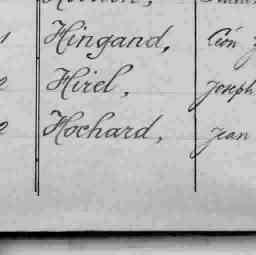 Hingand, Léon
Hirel, Joseph
Hochard, Jean